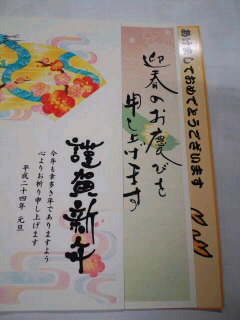 あけましておめでとうございます
迎春のお慶びを
申し上げます
謹賀新年
今年も幸多き年でありますよう
心よりお祈り申し上げます
平成二十四年 元旦